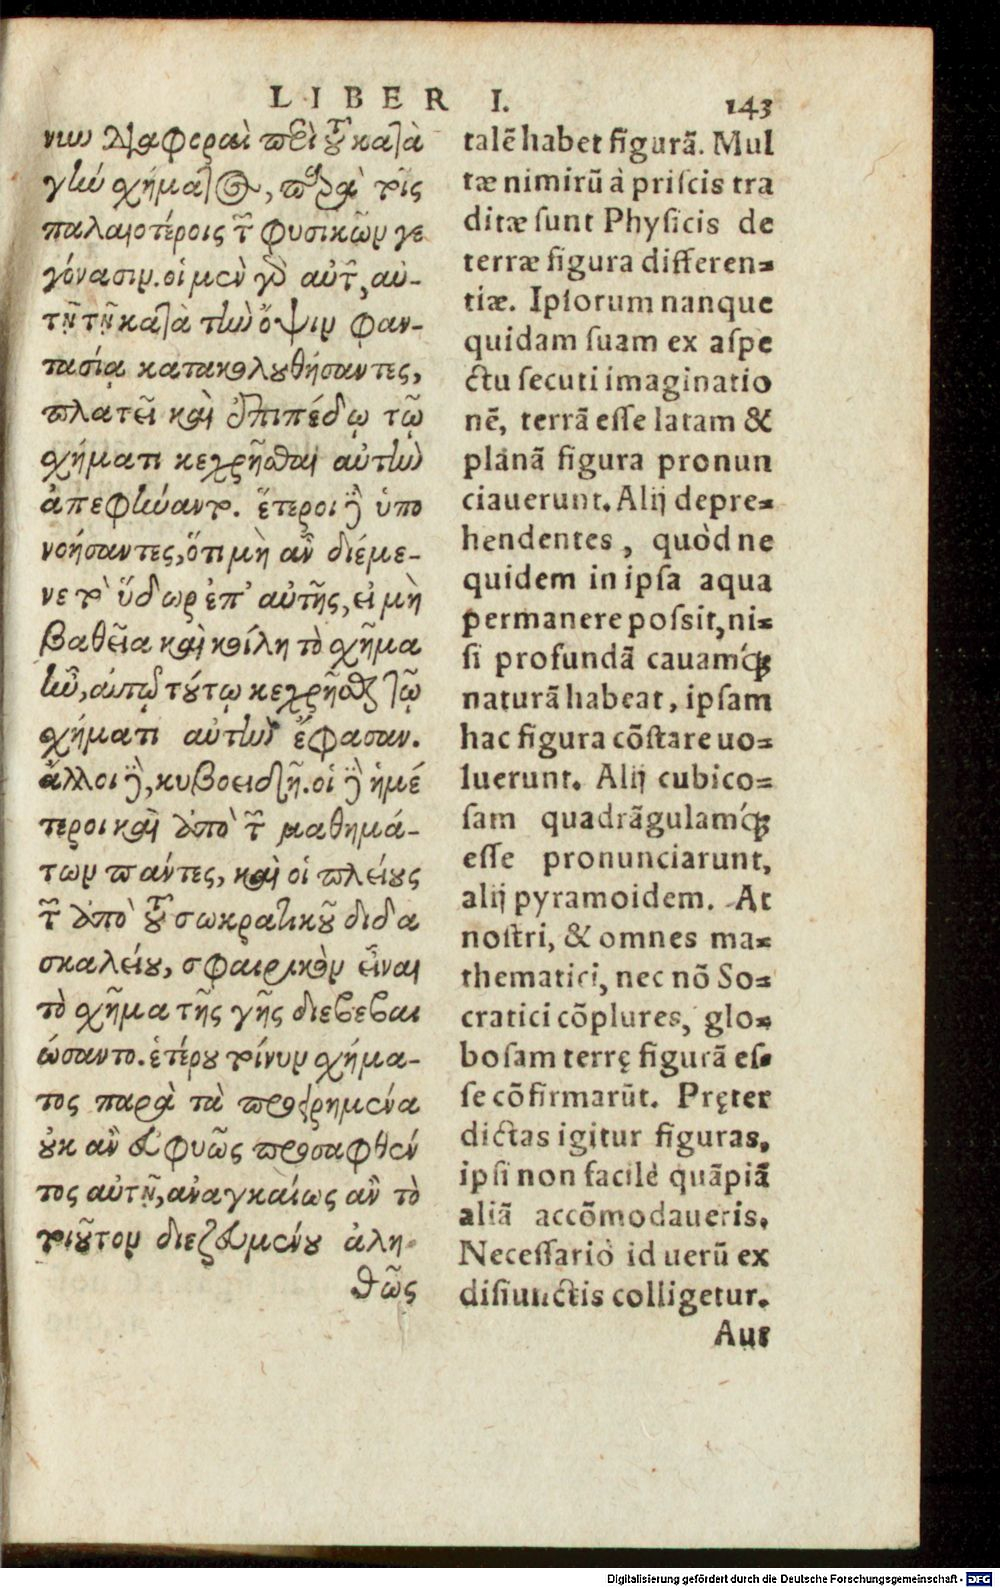 LIBER I. 143
νιῳ διαφοραὶ περὶ τοῦ κατὰ
γῆν σχήματος, παρὰ τοῖς
παλαιοτέροις τῶν φυσικῶν γε
γόνασιν. οἱ μὲν γὰρ αὐτῶν, αὐ-
τῇ τῇ κατὰ τὴν ὄψιν φαν-
τασίᾳ κατακολουθήσαντες,
πλατεῖ καὶ ἐπιπέδῳ τῷ
σχήματι κεχρῆσθαι αὐτὴν
ἀπεφήναντο. ἕτεροι δὲ ὑπο
νοήσαντες, ὅτι μὴ ἂν διέμε-
νε τὸ ὕδωρ ἐπ' αὐτῆς, εἰ μὴ
βαθεῖα καὶ κοίλη τὸ σχῆμα
ἦν, τούτῳ κεχρῆσθαι τῷ
σχήματι αὐτὴν ἔφασαν.
ἄλλοι δὲ, κυβοειδῆ. οἱ δὲ ἡμέ
τεροι καὶ ἀπὸ τῶν μαθημά-
των πάντες, καὶ οἱ πλείους
τῶν ἀπὸ τοῦ σωκρατικοῦ διδα
σκαλείου, σφαιρικὸν εἶναι
τὸ σχῆμα τῆς γῆς διεβεβαι
ώσαντο. ἑτέρου τοίνυν σχήμα-
τος παρὰ τὰ προειρημένα
οὐκ ἂν εὐφυῶς προσαφθέν
τος αὐτῇ, ἀναγκαίως ἂν τὸ
τοιοῦτον διεζευγμένου ἀλη
θῶς
talẽ habet figurã. Mul
tæ nimirũ à priscis tra
ditæ sunt Physicis de
terræ figura differen=
tiæ. Ipsorum nanque
quidam suam ex aspe
ctu secuti imaginatio
nẽ, terrã esse latam &
planã figura pronun
ciauerunt. Alij depre=
hendentes, quòd ne
quidem in ipsa aqua
permanere possit, ni=
si profundã cauamq́ꝫ
naturã habeat, ipsam
hac figura cõstare uo=
luerunt. Alij cubico=
sam quadrãgulamq́ꝫ
esse pronunciarunt,
alij pyramoidem. At
nostri, & omnes ma=
thematici, nec nõ So=
cratici cõplures, glo=
bosam terrę figurã es=
se cõfirmarũt. Pręter
dictas igitur figuras,
ipsi non facilè quãpiã
aliã accõmodaueris.
Necessariò id uerũ ex
disiunctis colligetur.
Aut
Digitalisierung gefördert durch die Deutsche Forschungsgemeinschaft - DFG